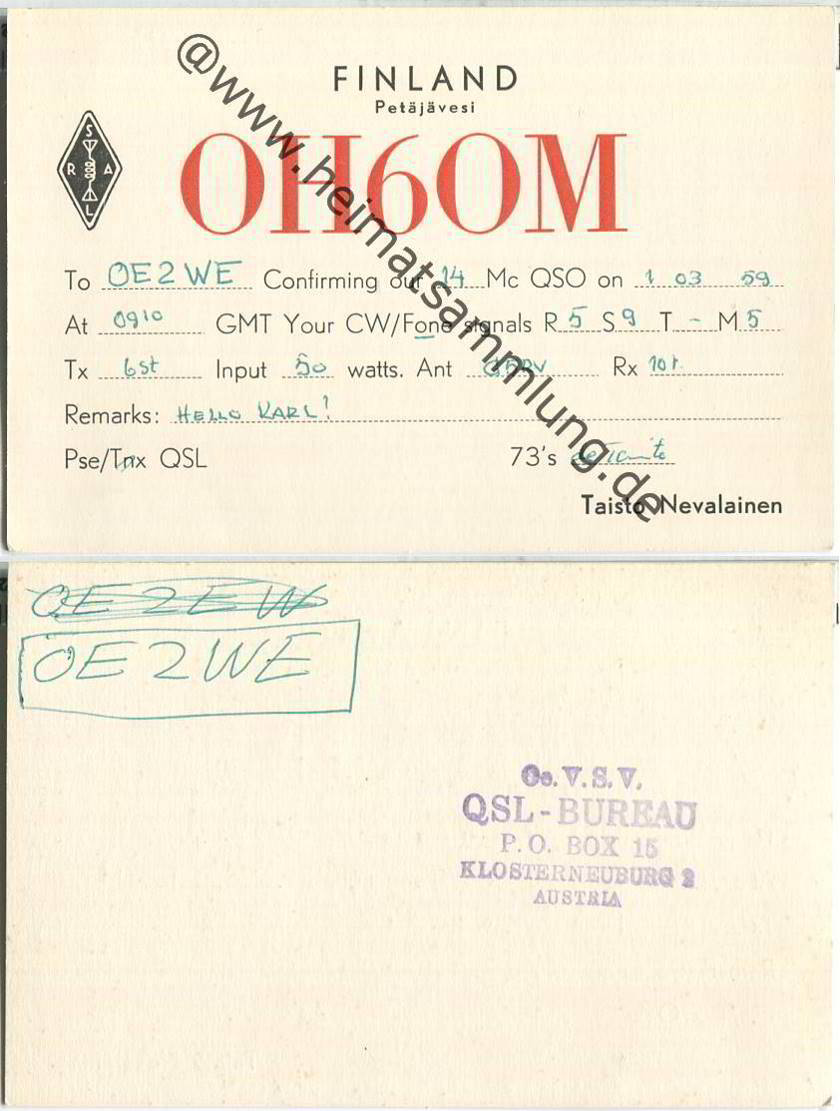 FINLAND
Petäjävesi
OH6OM
S
R A
L
@www.heimatsammlung.de
To OE2WE Confirming our 14 Mc QSO on 1 03 59
At 0910 GMT Your CW/Fone signals R 5 S 9 T - M 5
Tx 6st Input 50 watts. Ant G5RV Rx 10t
Remarks: HELLO KARL!
Pse/Tnx QSL 73's de Taisto
Taisto Nevalainen
OE2EW
OE2WE
Oe.V.S.V.
QSL-BUREAU
P.O. BOX 15
KLOSTERNEUBURG 2
AUSTRIA